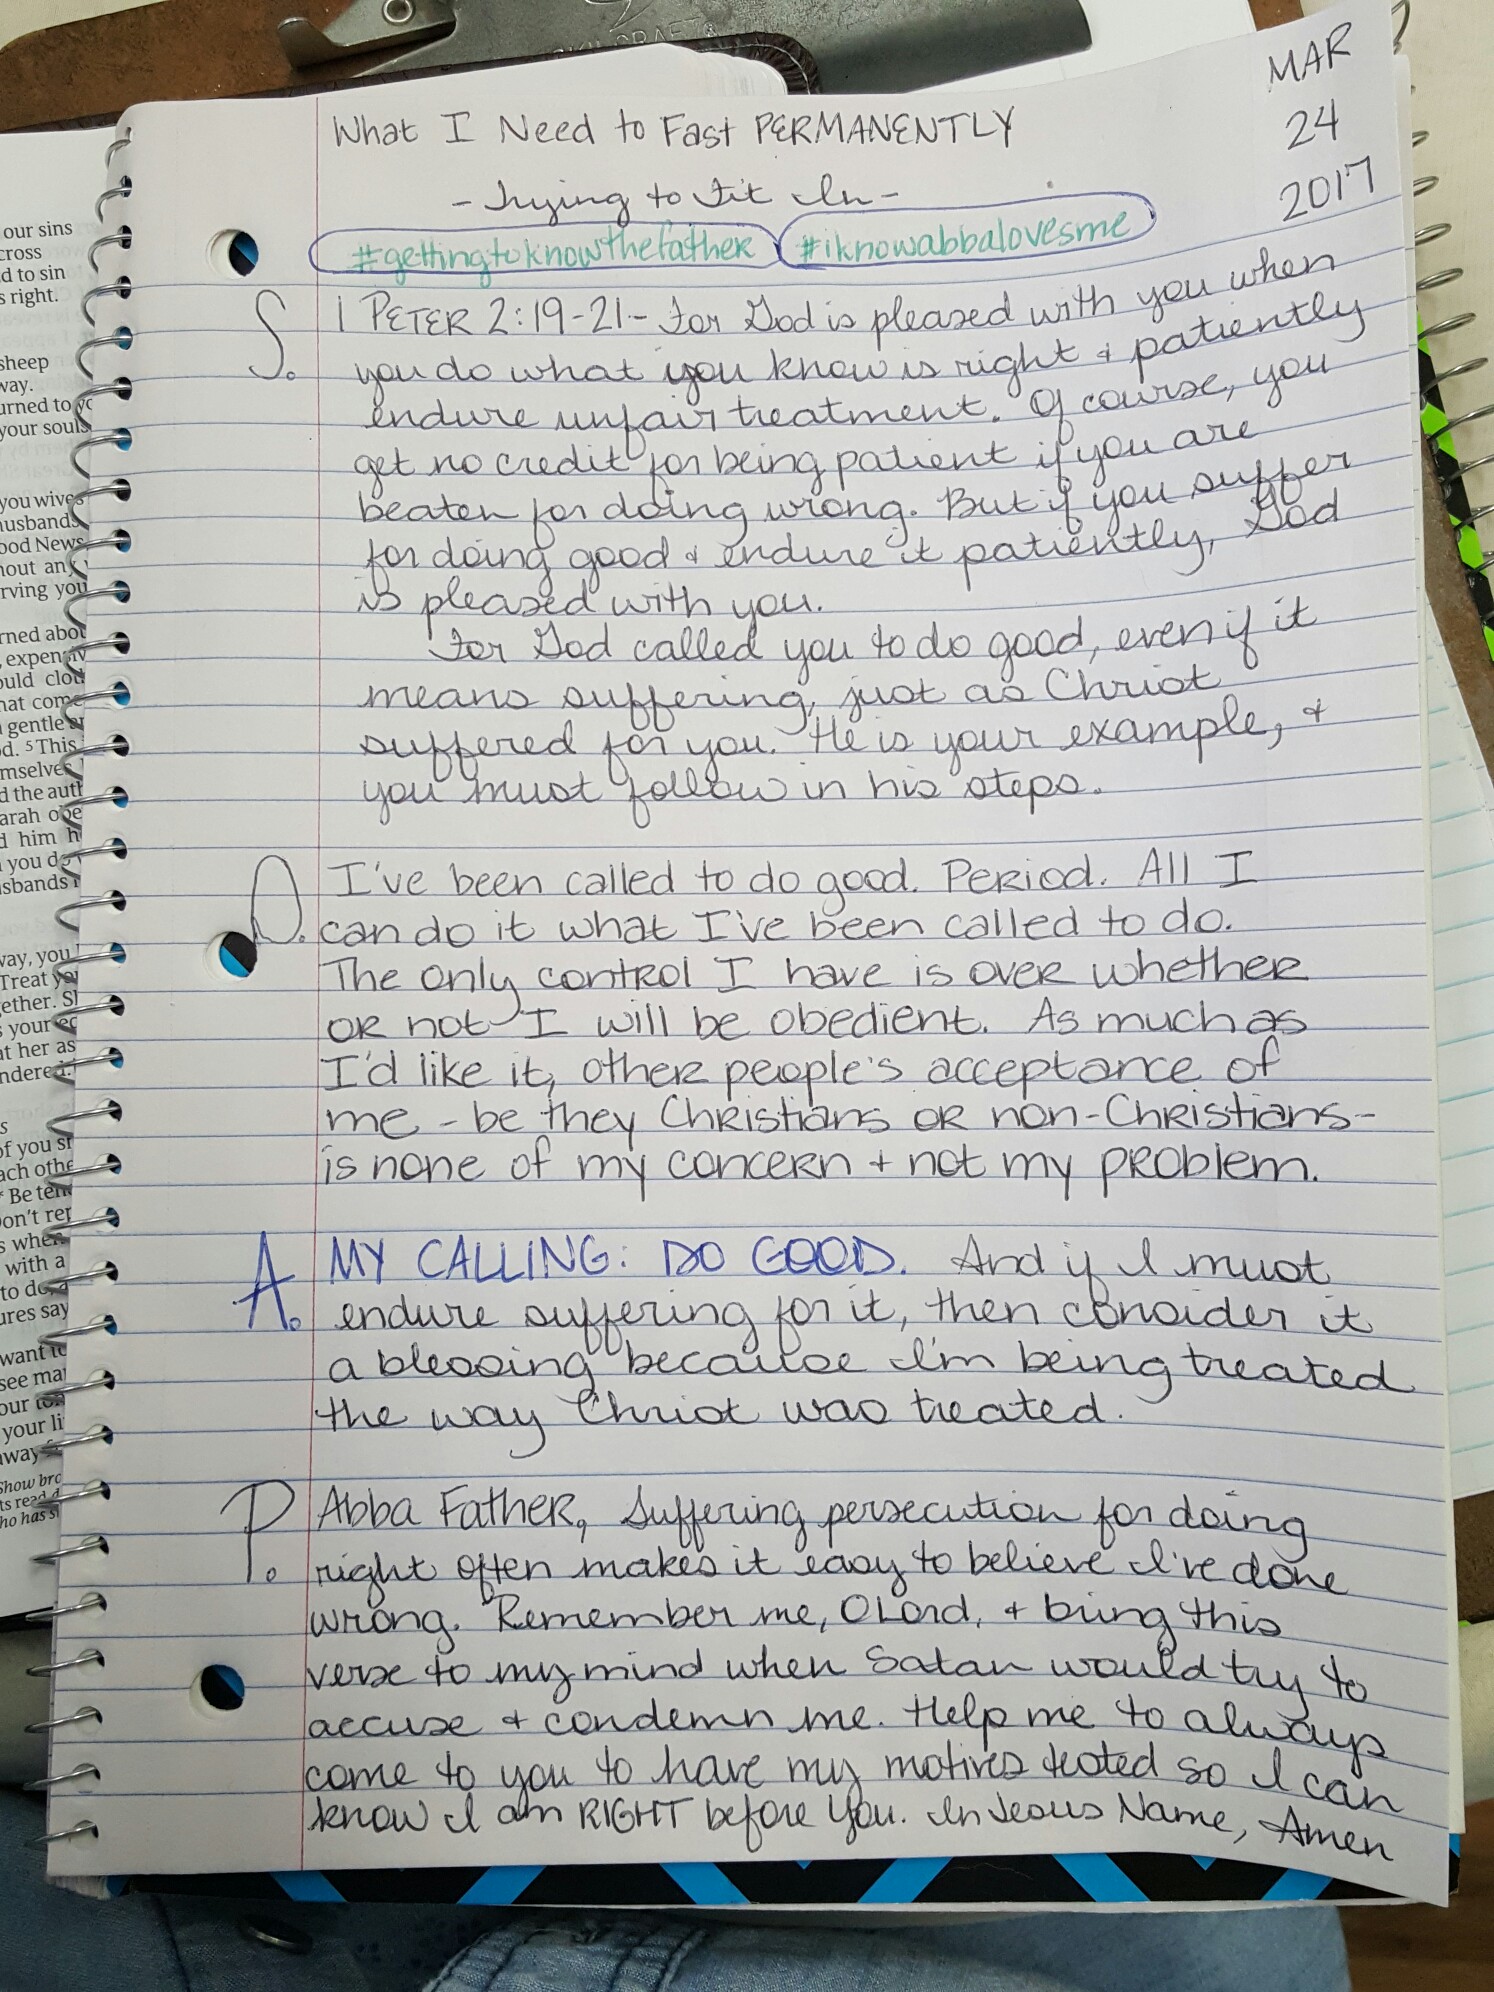 MAR
24
2017
What I Need to Fast PERMANENTLY
- Trying to Fit In -
#gettingtoknowthefather #iknowabbalovesme
S. 1 PETER 2:19-21 - For God is pleased with you when
you do what you know is right & patiently
endure unfair treatment. Of course, you
get no credit for being patient if you are
beaten for doing wrong. But if you suffer
for doing good & endure it patiently, God
is pleased with you.
For God called you to do good, even if it
means suffering, just as Christ
suffered for you. He is your example, &
you must follow in his steps.
O. I've been called to do good. Period. All I
can do it what I've been called to do.
The only control I have is over whether
or not I will be obedient. As much as
I'd like it, other people's acceptance of
me - be they Christians or non-Christians -
is none of my concern + not my problem.
A. MY CALLING: DO GOOD. And if I must
endure suffering for it, then consider it
a blessing because I'm being treated
the way Christ was treated.
P. Abba Father, Suffering persecution for doing
right often makes it easy to believe I've done
wrong. Remember me, O Lord, & bring this
verse to my mind when Satan would try to
accuse & condemn me. Help me to always
come to you to have my motives tested so I can
know I am RIGHT before You. In Jesus Name, Amen
our sins
cross
d to sin
s right.
sheep
way.
urned to
your souls
you wives
husbands
ood News
hout any
rving you
rned about
mselves
d him
you do
way, you
Treat
gether.
your
at her as
of you
Be
when
with a
want to
see
your